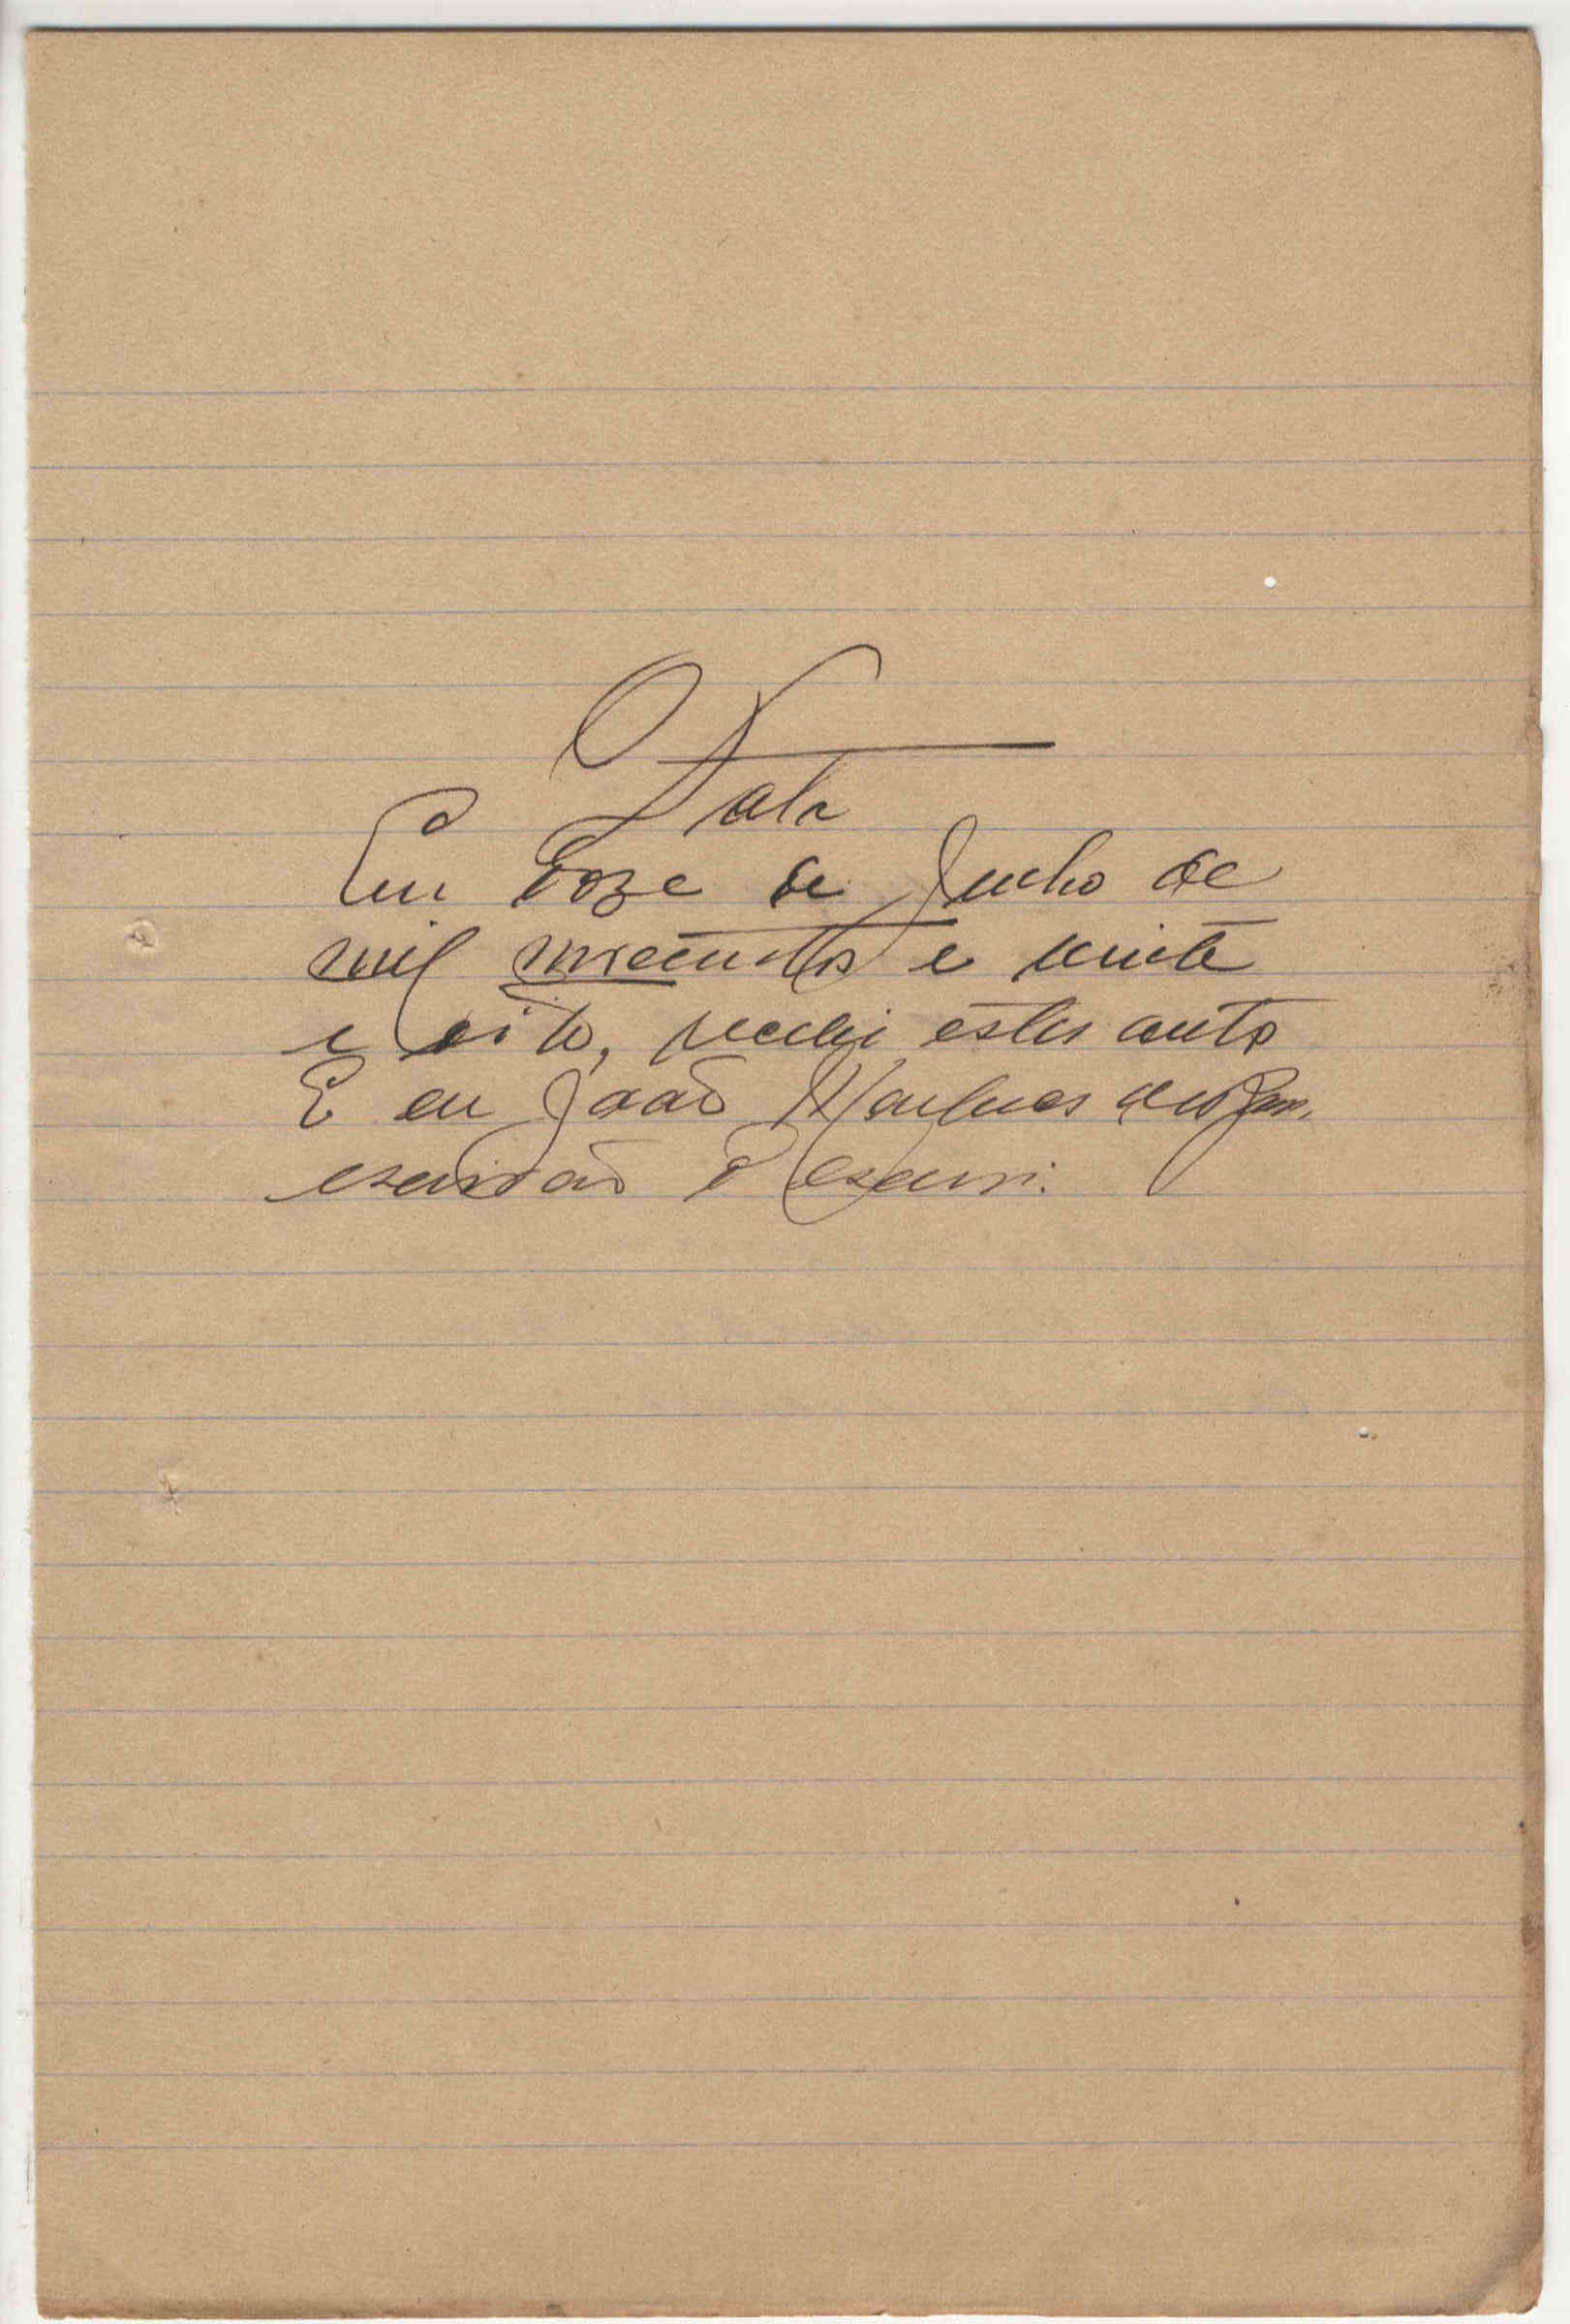 Data
Em doze de Junho de
mil novecentos e vinte
e oito, recebi estes autos
E eu João Marques dos
escrivão o escrevi.